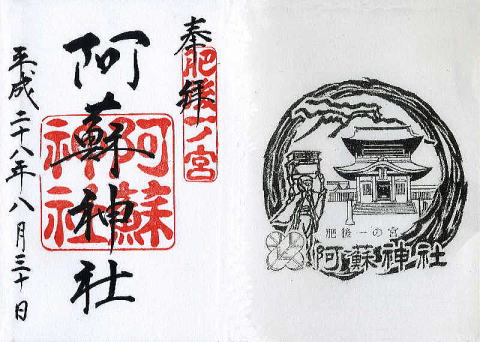 奉拝
肥後一ノ宮
阿蘇神社
阿蘇神社
平成二十八年八月三十日
肥後一の宮
阿蘇神社